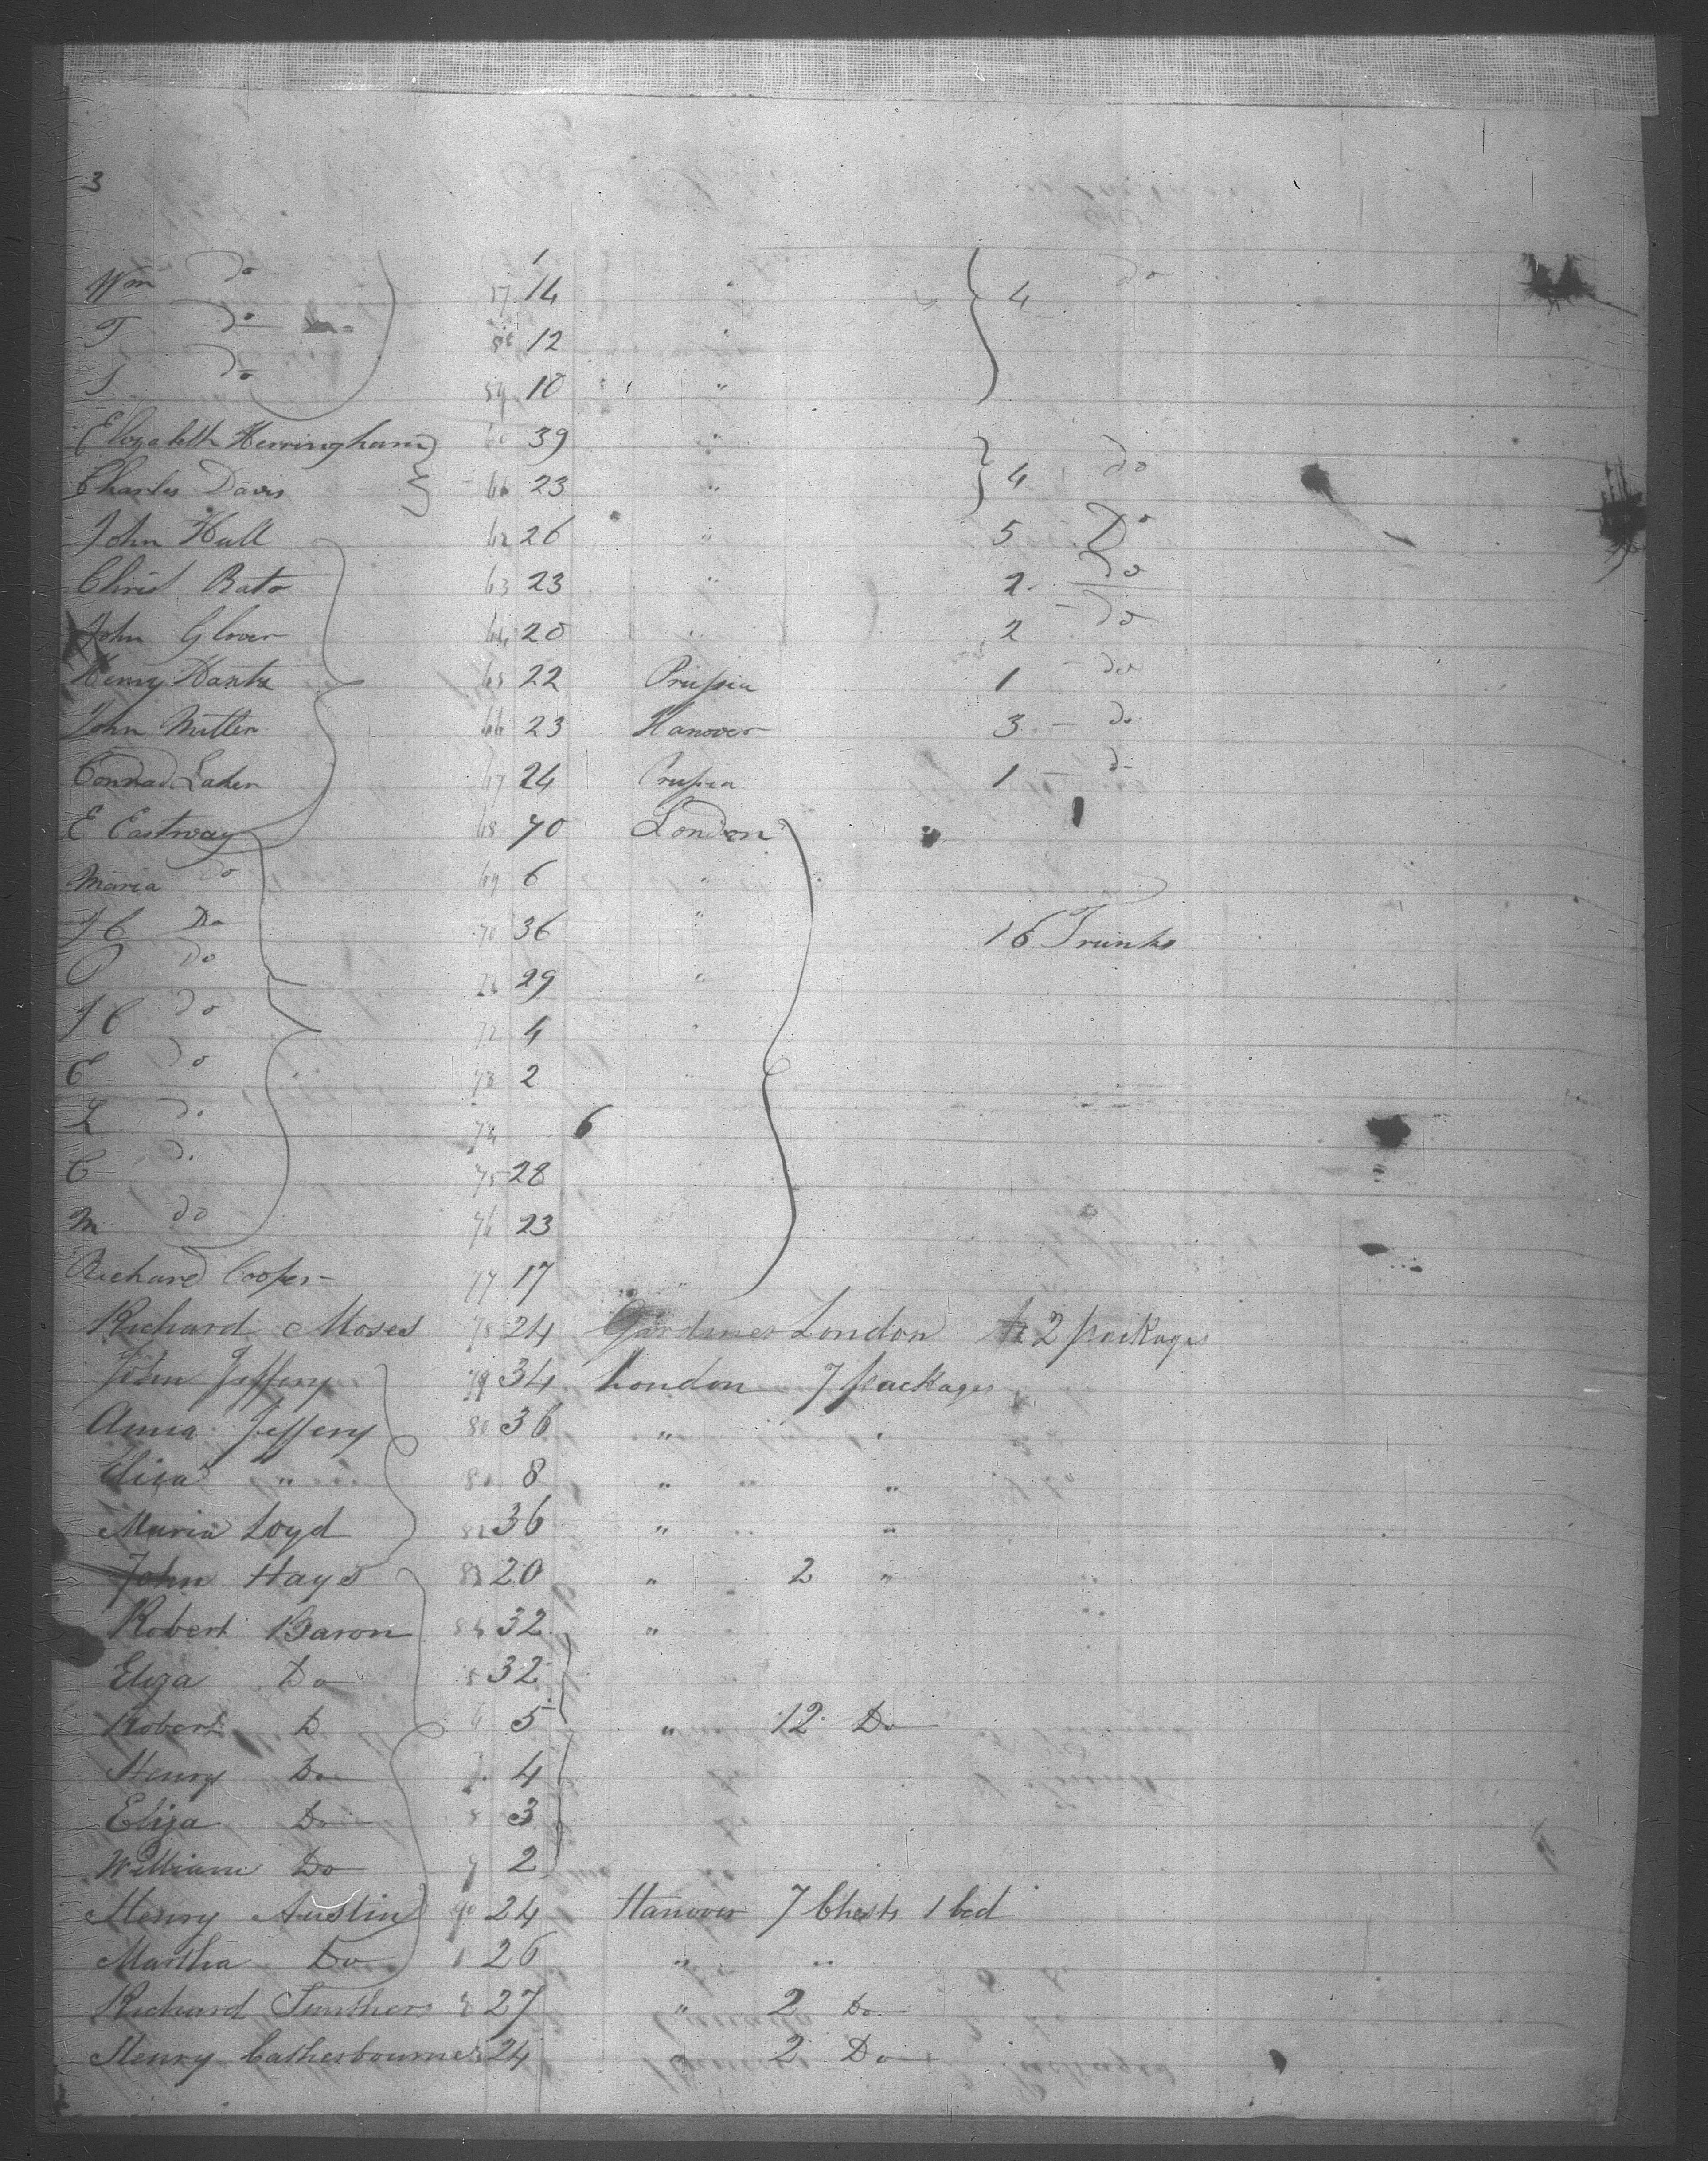 3
Wm do 57 14 " 4 do
T do 58 12 "
S do 59 10 "
Elizabeth Herringham 60 39 "
Charles Davis 61 23 " 4 do
John Hull 62 26 " 5 Do
Christ Bato 63 23 " 2 do
John Glover 64 20 " 2 do
Henry 65 22 Prussia 1 do
John Miller 66 23 Hanover 3 do
Conrad Laker 67 24 Prussia 1 do
E Eastway 68 70 London
Maria do 69 6 "
J C Do 70 36 " 16 Trunks
Do 29 "
J C do 72 4 "
C do 73 2 "
L do 74 6
C do 75 28
M do 76 23
Richard Cooper 77 17 "
Richard Moses 78 24 London 2 packages
John Jeffery 79 34 London 7 packages
Anna Jeffery 80 36 " "
Eliza " 8 " "
Maria Loyd 82 36 " "
John Hays 83 20 " 2 "
Robert Baron 84 32 "
Eliza Do 5 32
Robert D 6 5 " 12 Do
Henry Do 7 4
Eliza Do 8 3
William Do 9 2
Henry Austin 90 24 Hanover 7 Chests 1 bed
Martha Do 1 26 " "
Richard 27 " 2 Do
Henry Cathesbourne 24 2 Do